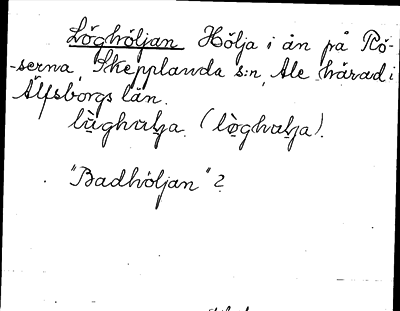 Löghöljan Hölja i ån på Rö-
-serna, Skepplanda s:n, Ale härad i
Älfsborgs län.
"Badhöljan"?